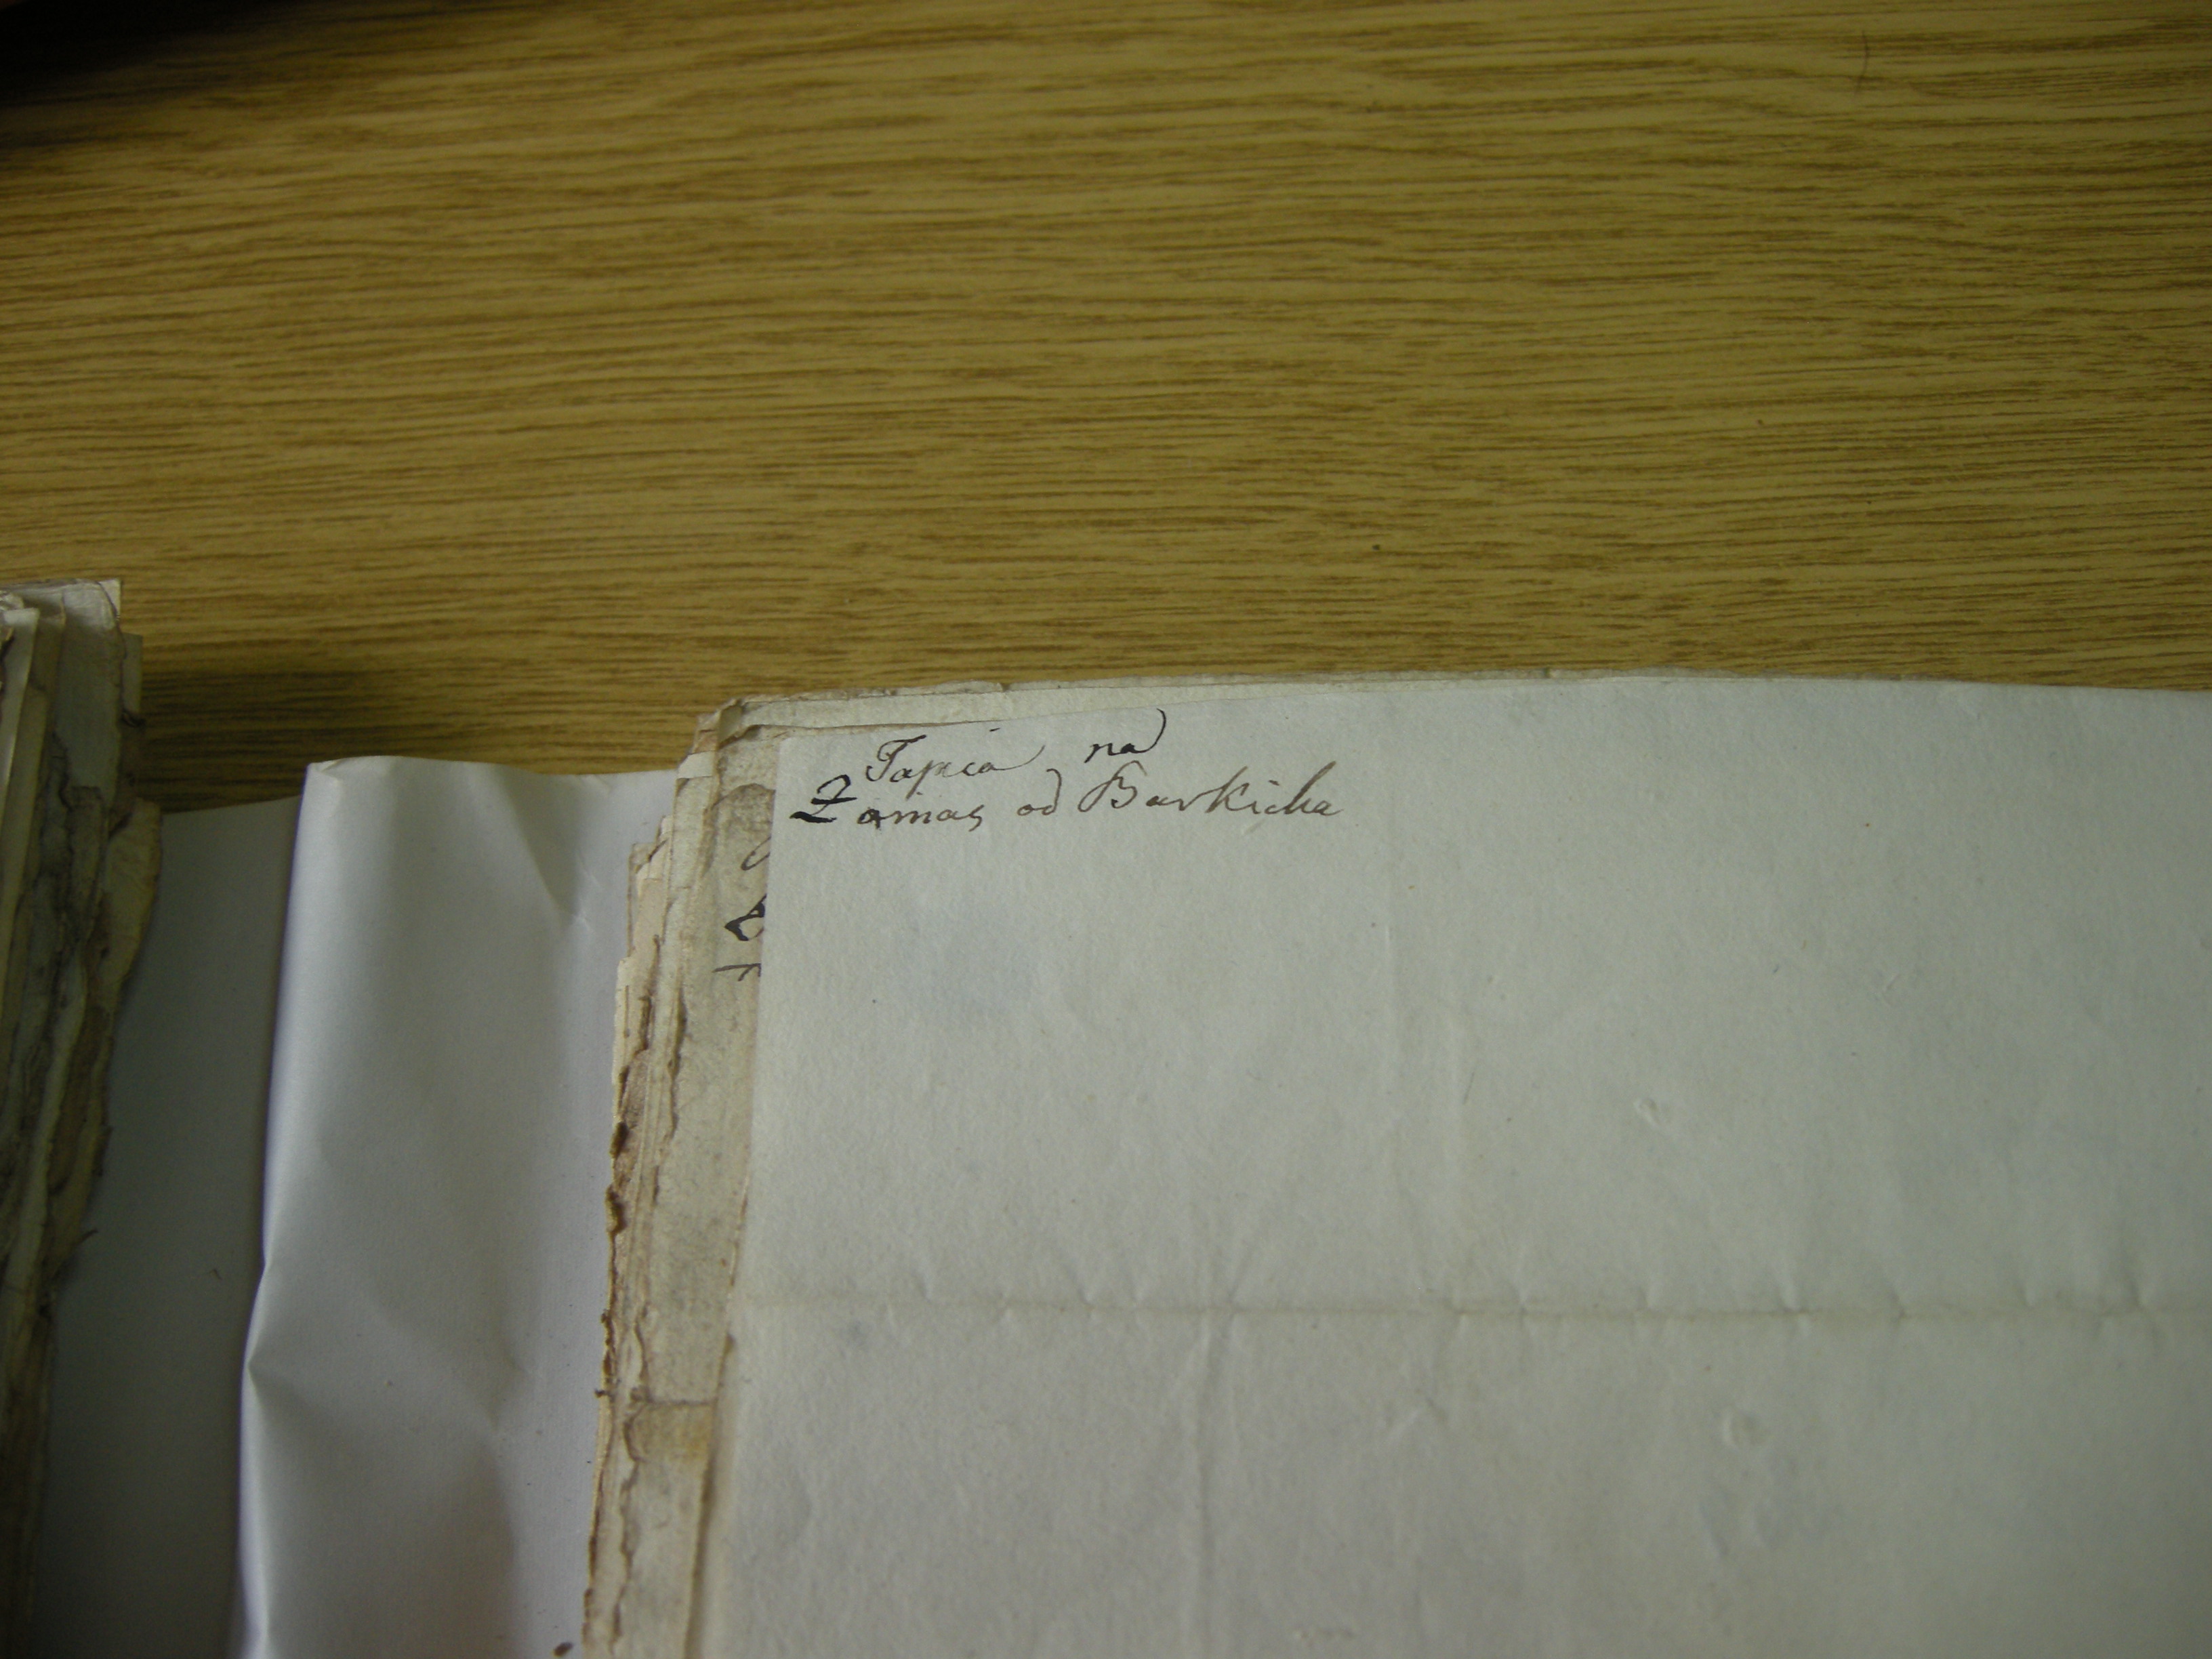 Tapia na
Zaimas od Barkicha